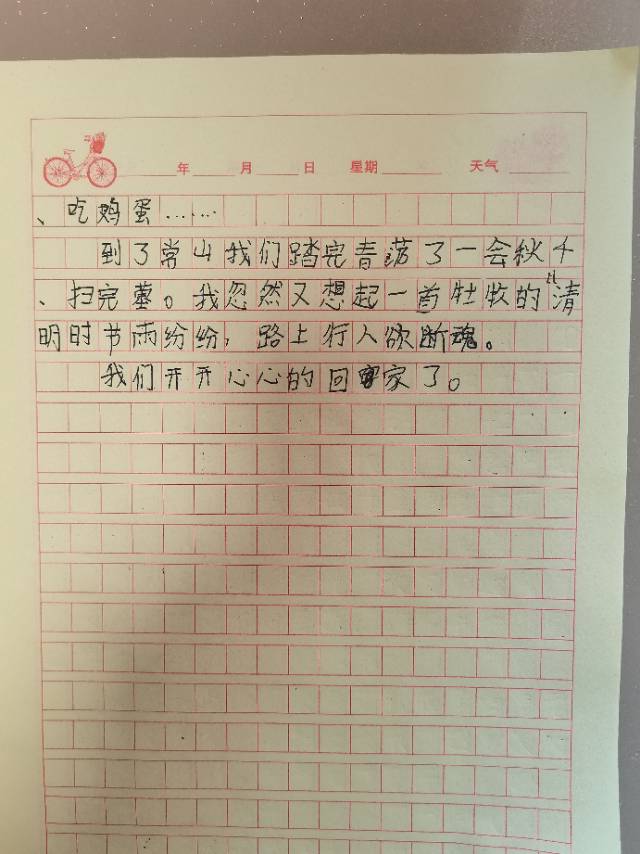 年 月 日 星期 天气
、吃鸡蛋……
到了常山我们踏完青荡了一会秋千
、扫完墓。我忽然又想起一首牡牧的“清
明时节雨纷纷，路上行人欲断魂。
我们开开心心的回家了。